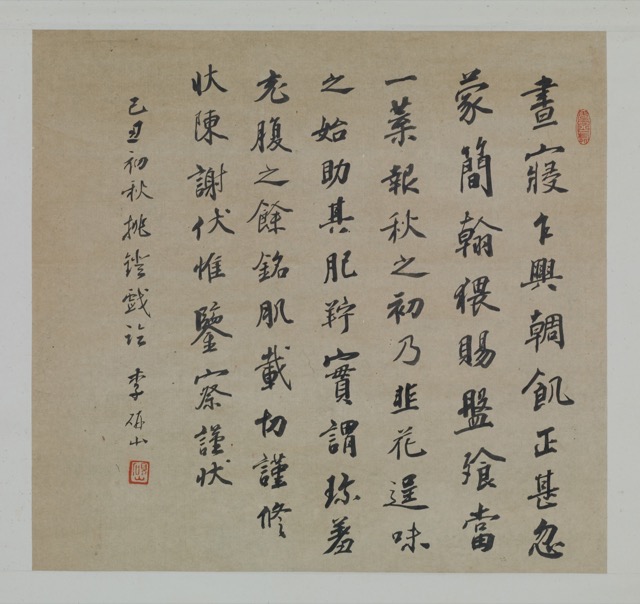 晝寢乍興輖飢正甚忽
蒙簡翰猥賜盤飧當
一葉報秋之初乃韭花逞味
之始助其肥羜實謂珍羞
充腹之餘銘肌載切謹修
狀陳謝伏惟鑒察謹狀
己丑初秋挑燈戲